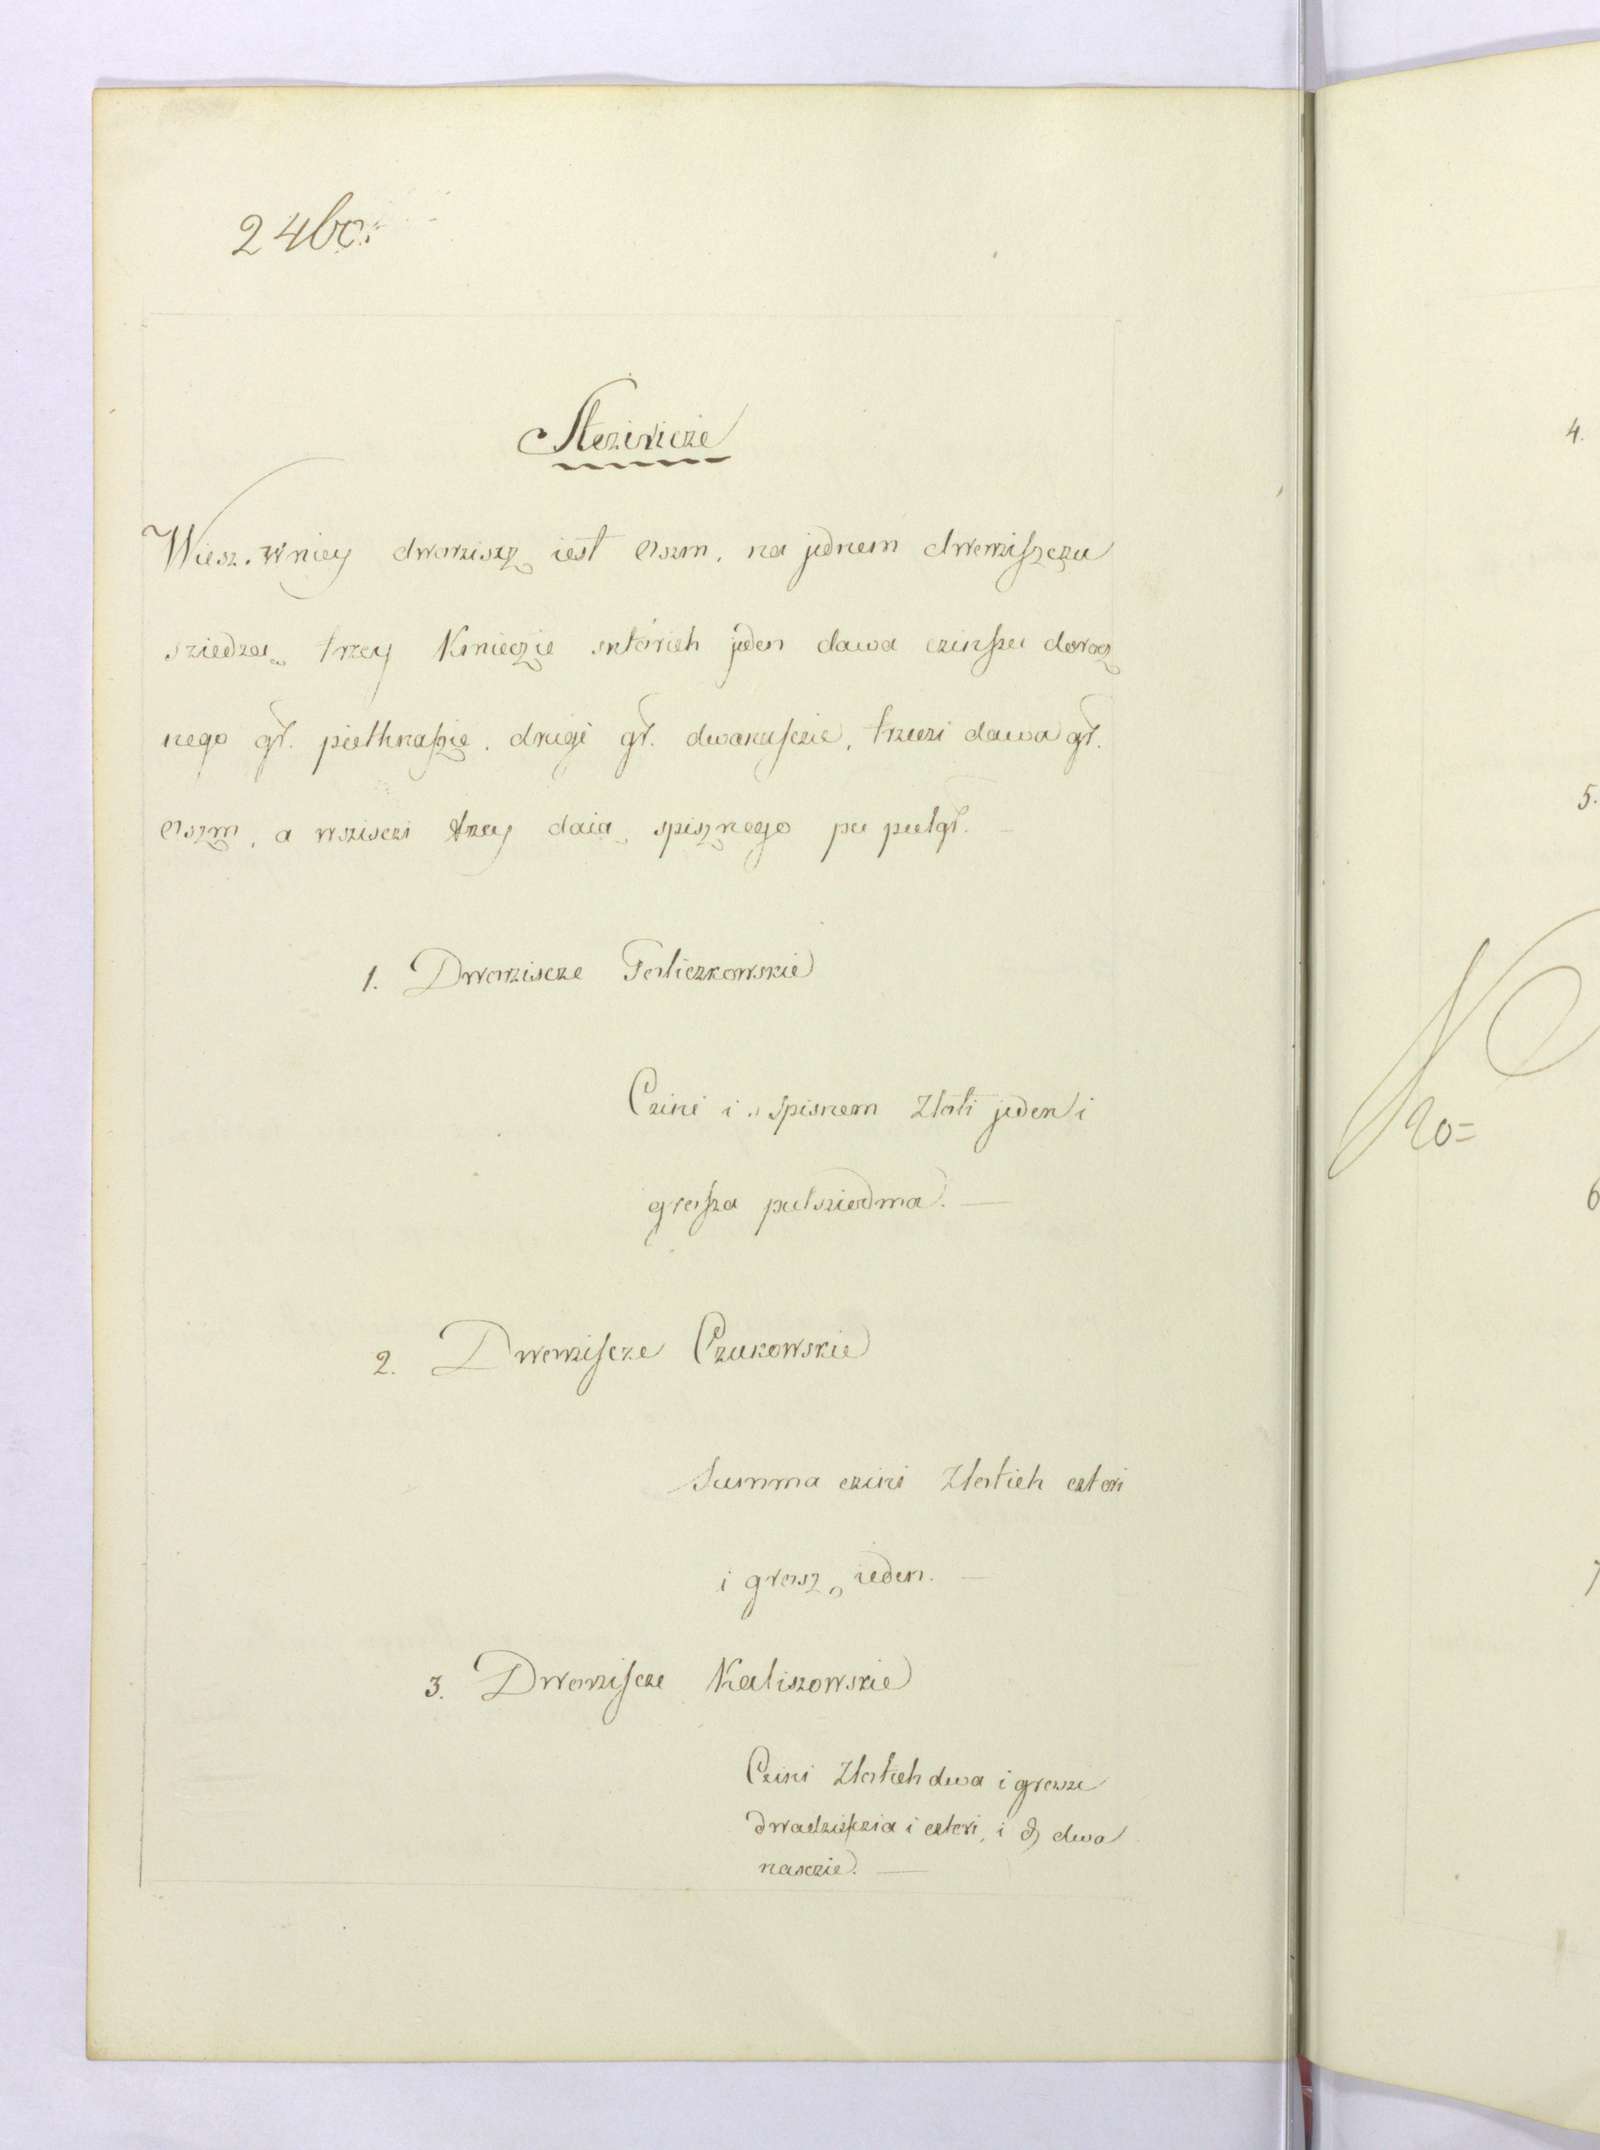 24bc.
Stezinicze
Wiesz. w niey dworziszcz iest oszm, na jednem dworziszczu
sziedzą trzey Kmieczie sktórich jeden dawa czinszu dorocz
nego gr. piethnaszie, drugi gr. dwanaszcie, trzeczi dawa gr.
oszm, a wszisczi trzey daią spisznego po pułgr. —
1. Dworziscze Goliczkowskie
Czini i s spisnem Złoti jeden i
grosza pulsziodma. —
2. Dworziscze Czukowskie
Summa czini Złotich czteri
i grosz jeden. —
3. Dworziscze Kaliszowskie
Czini Złotich dwa i groszi
dwadzieszczia i czteri, i dwa
nasczie. —
4.
5.
No=
6
7